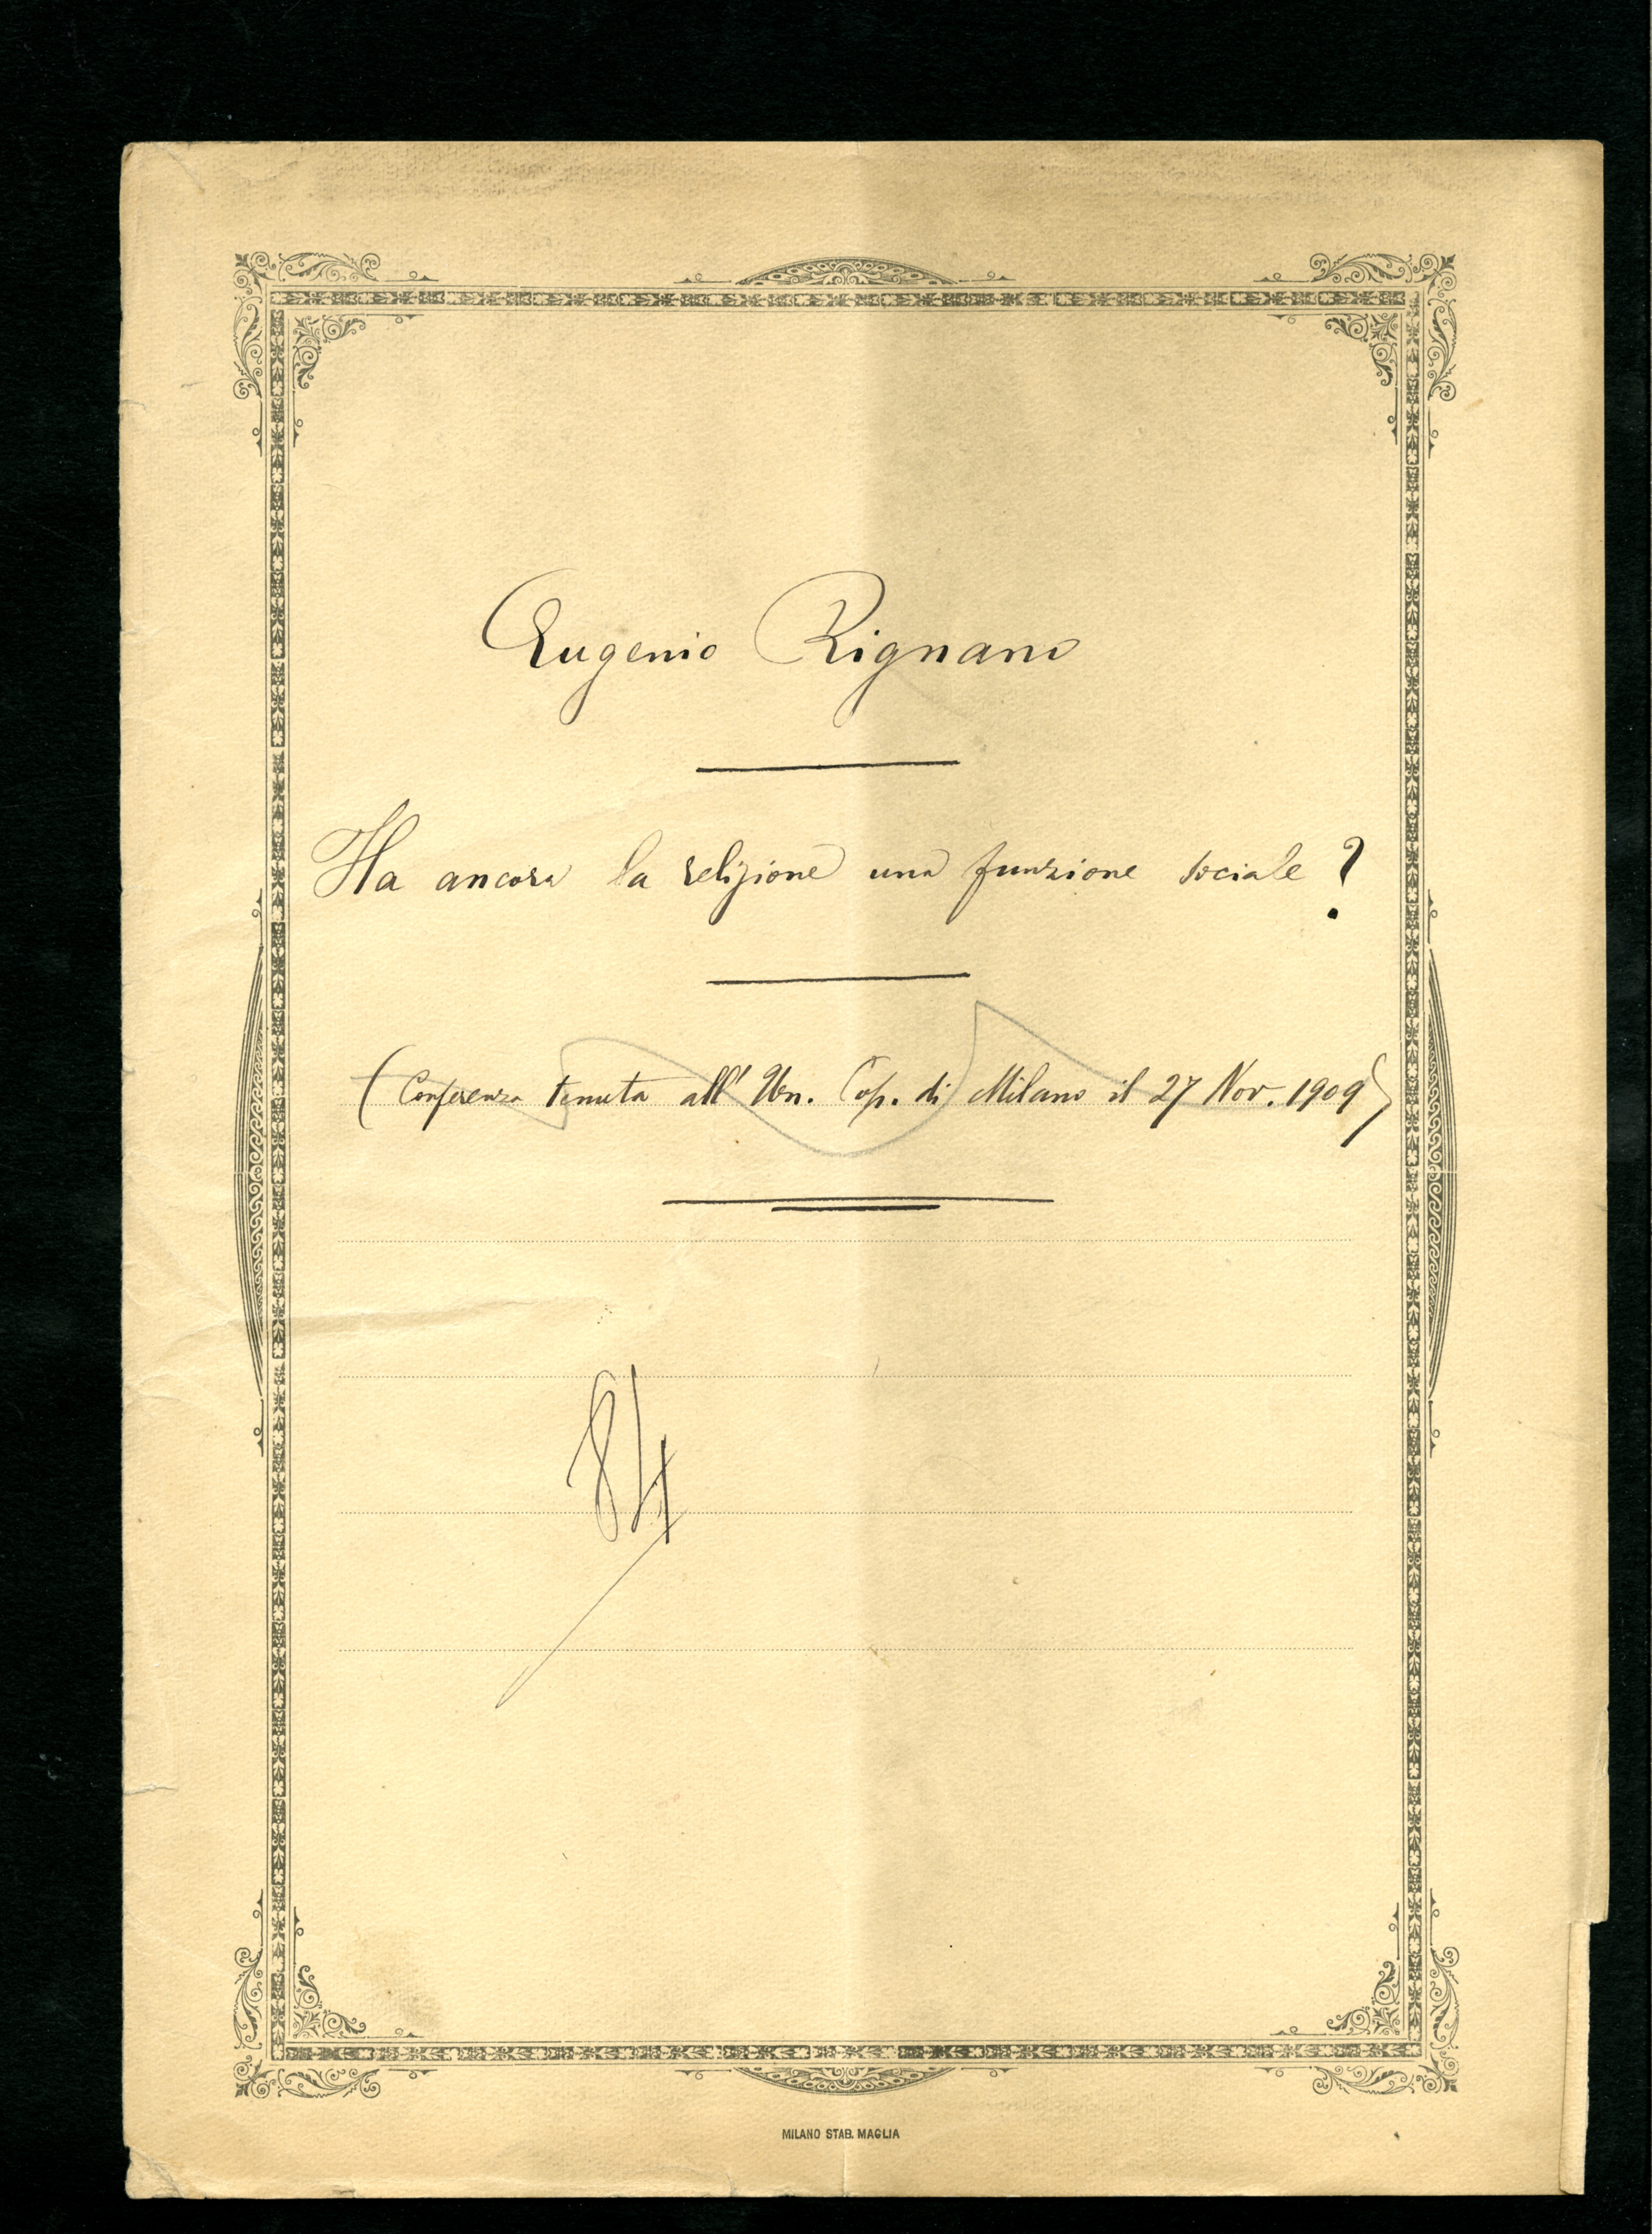 Eugenio Rignano
Ha ancora la religione una funzione sociale ?
(Conferenza tenuta all' Un. Pop. di Milano il 27 Nov. 1909)
84
MILANO STAB. MAGLIA